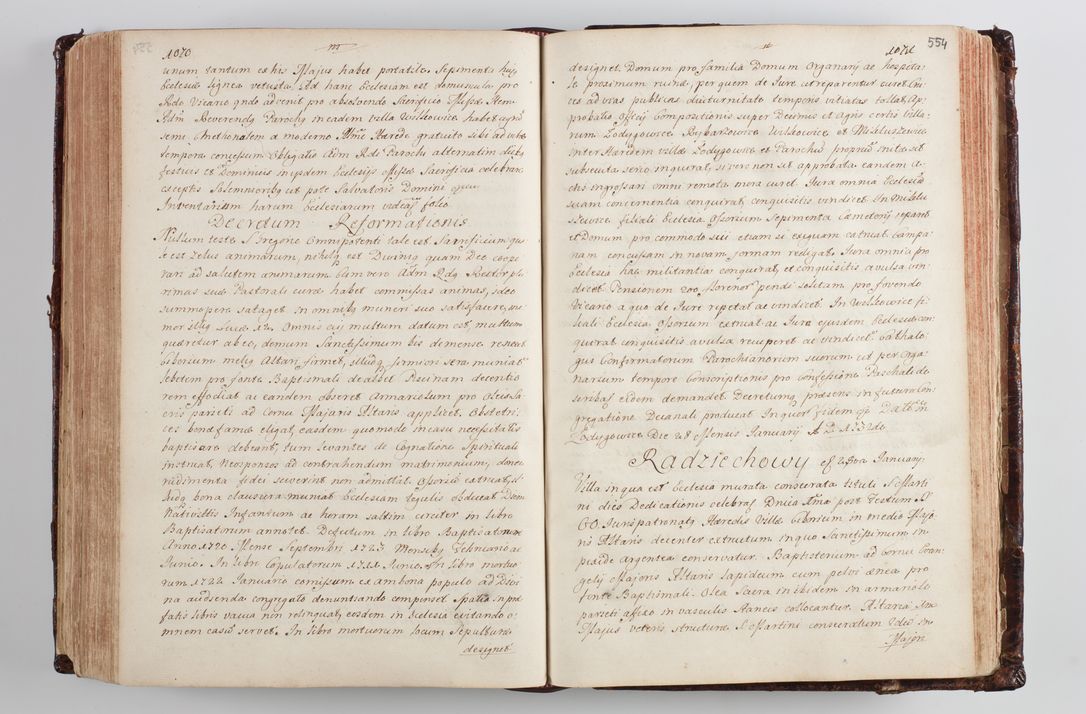 1070
unum tantum ex his Majus habet portatile. Sepimenta hujus
Ecclesiæ lignea vetusta, sed hanc Ecclesiam est domuncula pro
Rdo Vicario qndo advenit pro absolvendo Sacrificio Missæ Item
Adm Reverendus Parochus in eadem villa Wilkowice habet agrum
semi Cmethonalem a moderno Illmo Hærede gratuito sibi ad vitæ
tempora concessum. Obligatio Adm Rdi Parochi alternatim diebus
festivis et Dominicis in iisdem Ecclesijs Missæ Sacrificia celebrare
exceptis Solemnioribus ut pote Salvatoris Domini
Inventarium harum Ecclesiarum vide folio
Decretum Reformationis
Nullum teste S. Gregorio Omnipotenti tale est Sacrificium qua
le est zelus animarum, nihilque est Divinius quam Deo coope
rari ad salutem animarum. Cum vero Adm Rdus Rector plu
rimas suæ Pastorali curæ habet commissas animas, ideo
summopere satagat in omnibus muneri suo satisfacere, me
mor illius Lucæ 12. Omnis cui multum datum est, multum
quæretur ab eo, demum Sanctissimum bis de mense renovet
Ciborium melius Altari firmet, illudque firmiori sera muniat
lebetem pro fonte Baptismali dealbet Piscinam decentio
rem effodiat ac eandem obseret Armariolum pro Oleis Sa
cris parieti ad Cornu Majoris Altaris applicet. Obstetri
ces bonæ famæ eligat, easdem quomodo in casu necessitatis
baptisare debeant, tum levantes de Cognatione Spirituali
instruat, Neosponsos ad contrahendum matrimonium, donec
rudimenta fidei sciverint non admittat. Ossoria extruat, il
ludque bona clausura muniat Ecclesiam tegulis
Nativitatis Infantum ac horam saltim circiter in libro
Baptisatorum annotet. Defectum in libro Baptisatorum
Anno 1720 Mense Septembri 1723 Mensibus Februario ac
Junio. In libro Copulatorum 1721 Junio. In libro mortuo
rum 1722 Januario comissum ex ambona populo ad Divi
na audienda congregato denuntiando compenset Spatia in præ
fatis libris vacua non relinquat, eosdem in Ecclesia evitando o
mnem casum servet. In libro mortuorum locum Sepulturæ
designet
1071
554
designet. Domum pro familia Domum Organarij ac hospita
le proximum ruinæ, per quem de Jure est reparentur curet Cru
ces ad vias publicas diuturnitate temporis vitiatas tollat, Ap
probatio Officij Compositionis super Decimis et Agris certis Villa
rum Lodygowice Rybarzowice Wilkowice et Mikluszewice
inter Hæredem villæ Lodygowice et Parochum proprium inita sit
subsecuta serio inquirat, si vero non sit approbata eandem a
ctis ingrossari omni remota mora curet. Jura omnia Ecclesiam
suam concernentia conquirat conquisitis vindicet. In Miklu
szewice filiali Ecclesia Ossorium Sepimenta Cæmeterij reparet
et Domum pro commodo sui etiam si exiguam extruat, Campa
nam concussam in novam formam redigat. Jura omnia pro
Ecclesia hac militantia conquirat, et conquisitis avulsa vin
dicet. Pensionem 200 florenorum pendi solitam pro fovendo
Vicario a quo de Jure repetat ac vindicet. In Wilkowice fi
liali Ecclesia Ossorium extruat ac Jura ejusdem Ecclesiæ con
quirat conquisitis avulsa recuperet ac vindicet. Cathalo
gus Confirmatorum Parochianorum suorum ut per Orga
narium tempore Conscriptionis pro Confessione Paschali de
scribat eidem demandet. Decretum præsens in futura Con
gregatione Decanali producat In quorum fidem Datt: in
Lodygowice Die 28 Mensis Januarij A. D. 1732do
Radziechowy 28va Januarij
Villa in qua est Ecclesia murata consecrata tituli S. Marti
ni dies Dedicationis celebratur Dnica Ima post Festum
OO. Jurispatronatus Hæredis Villæ Ciborium in medio Majo
ris Altaris decenter extructum in quo Sanctissimum in
pixide argentea conservatur. Baptisterium ad Cornu Evan
gelij Majoris Altaris lapideum cum pelvi ænea pro
fonte Baptismali. Olea Sacra in ibidem in armariolo
parieti affixo in vasculis stanneis collocantur. Altaria
Majus veteris structuræ S. Martini consecratum
Majori